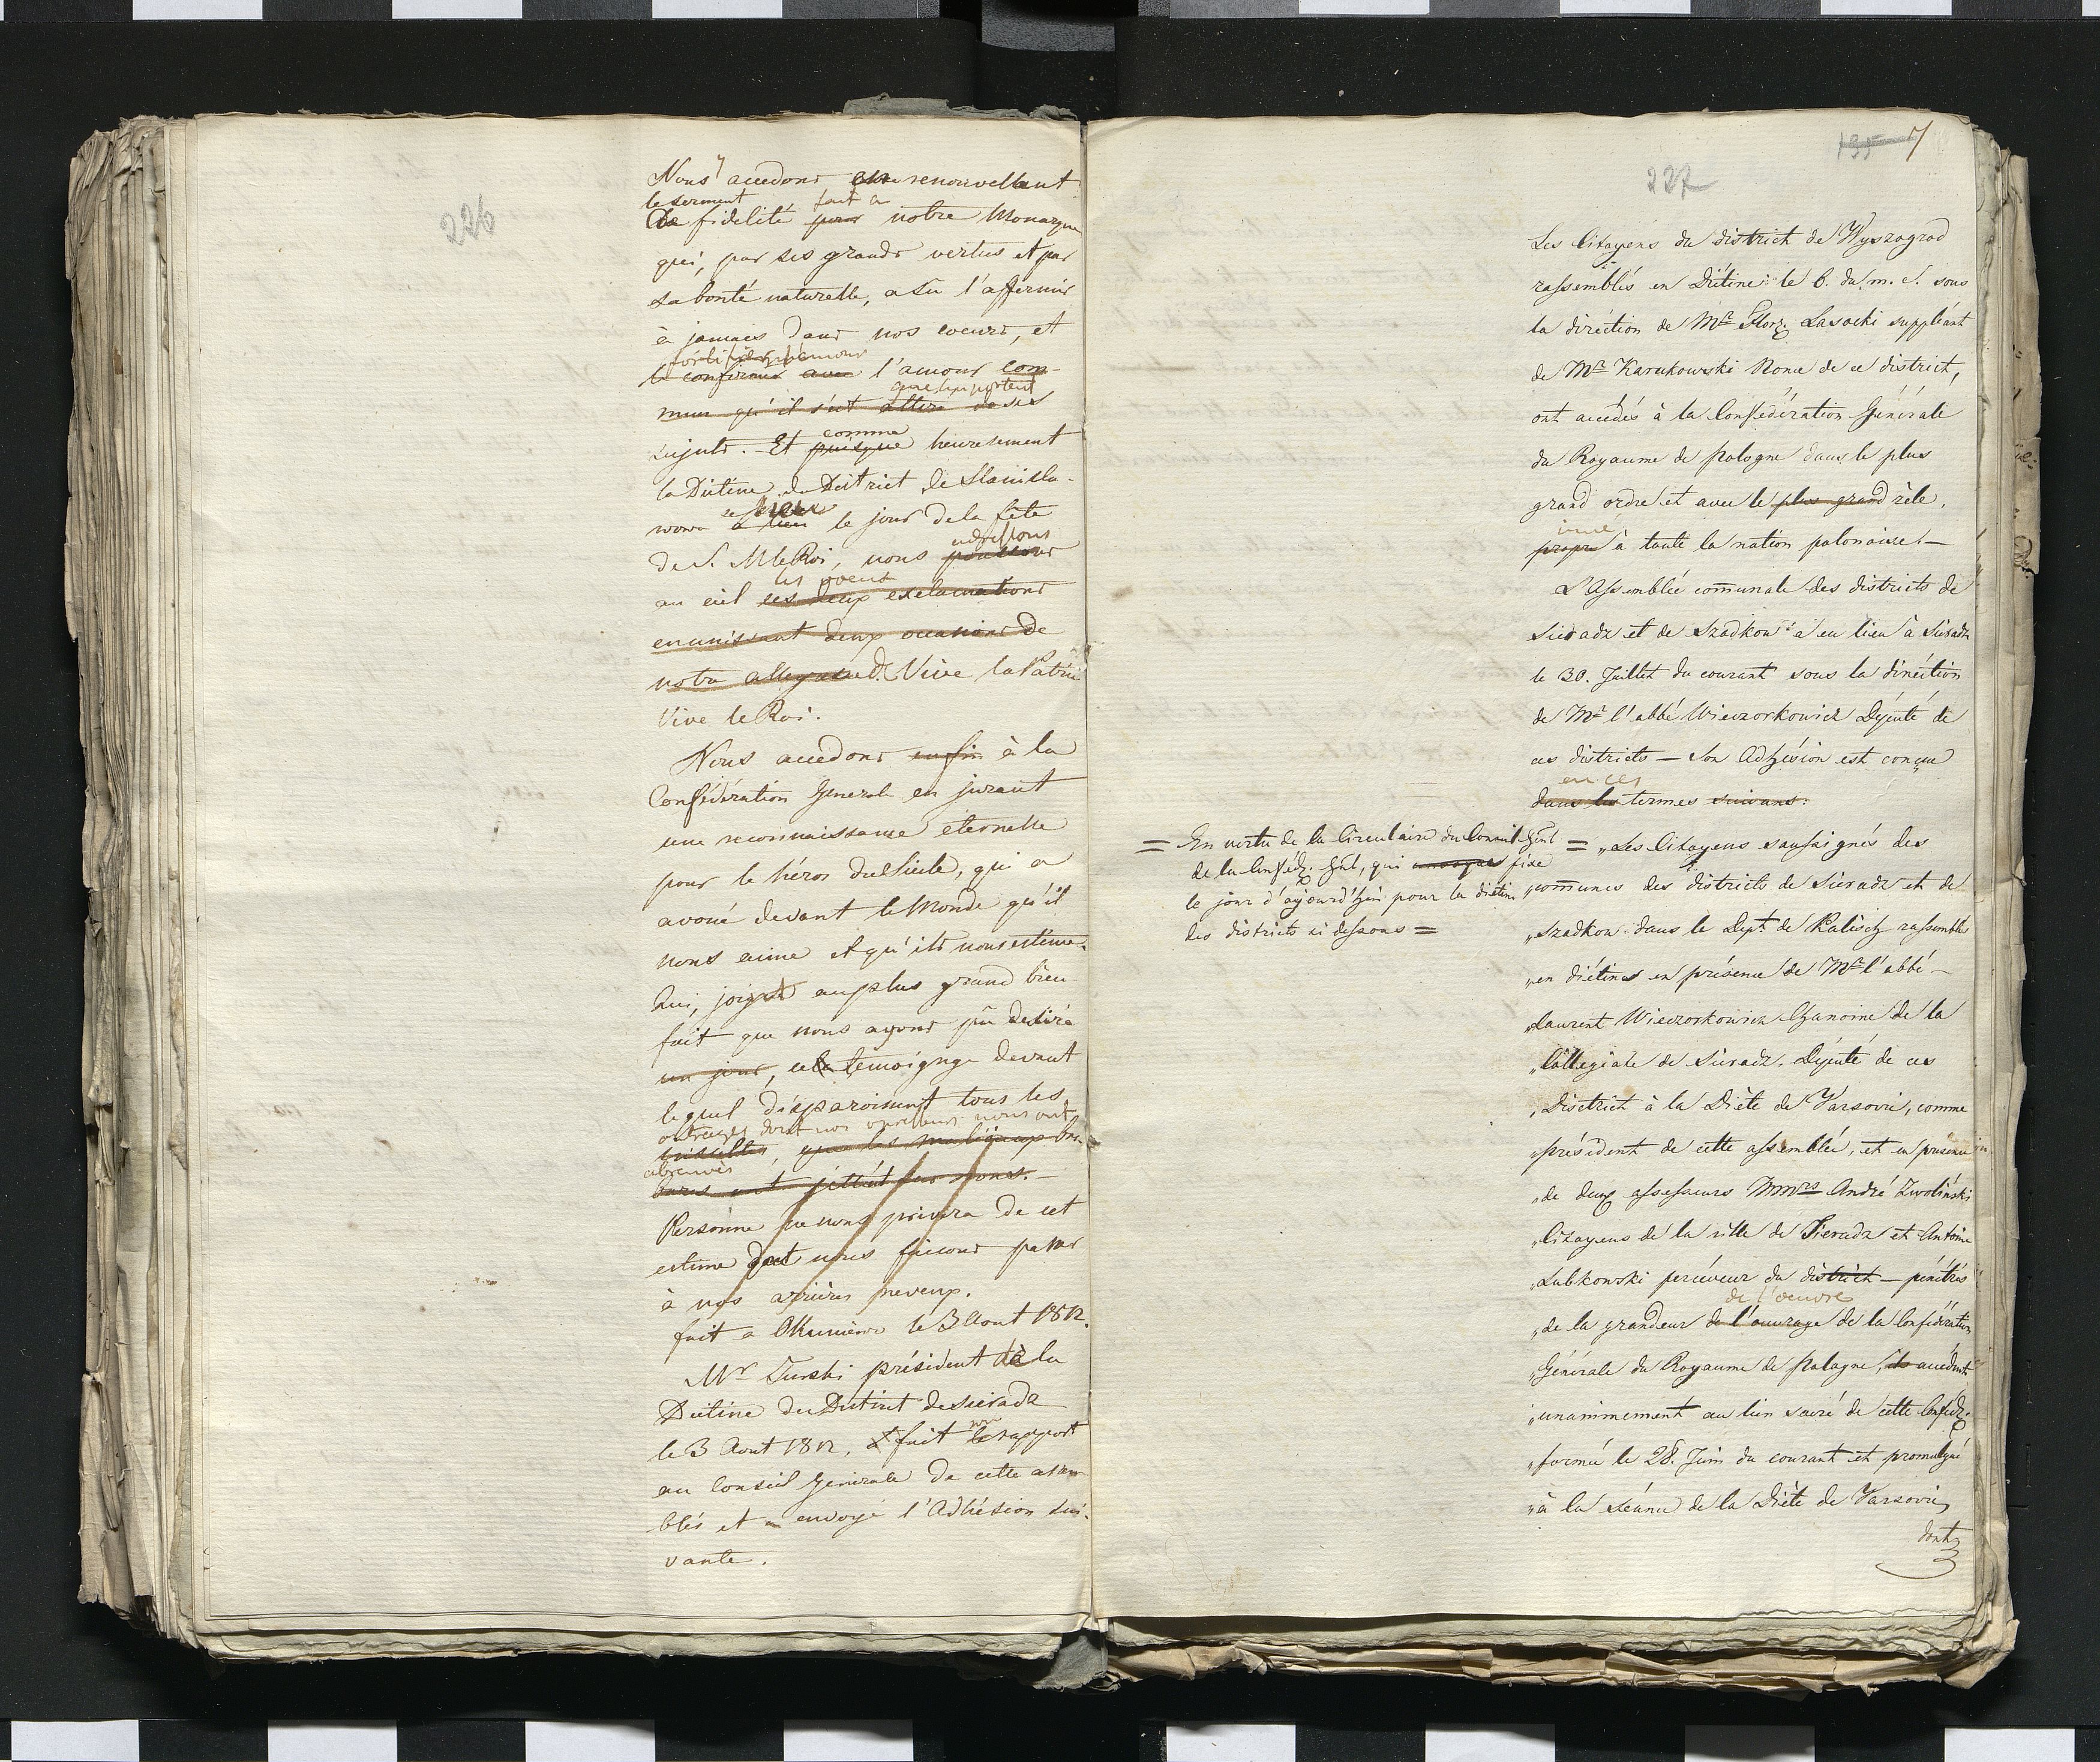 226
Nous y accedons en renouvellant
le serment fait à
de fidelité pour notre Monarque
qui, par ses grands vertus et par
sa bonté naturelle, a sû l'affermir
à jamais dans nos coeurs, et
fortifier
le confirmer avec l'amour com-
que lui portent
mun qu'il s'est attiré de ses
sujets. Et puisque heureusement
comme
la Diétine du District de Stanisla-
wow a lieu le jour de la fête
de S. M. le Roi, nous poussons
adressons
les voeux
au ciel ses deux exclamations
en unissant deux occasions de
notre allegresse. Vive la Patrie
Vive le Roi.
Nous accedons enfin à la
Confédération Generale en jurant
une reconnaissance eternelle
pour le héros du Siecle, qui a
avoué devant le Monde qu'il
nous aime et qu'il nous estime.
Qui, joignit au plus grand bien-
fait que nous ayons pû desiré
un jour, ce témoignage devant
lequel disparoissent tous les
outrages dont nos oppresseurs nous ont
que les
abreuvés
bares ont jetté sur nous.
Personne ne nous privera de cet
estime que nous ferons passer
à nos arrières neveux.
fait a Okuniew le 3 Aout 1812.
Mr Turski président de la
Diétine du District de Sieradz
le 3 Aout 1812. fait son rapport
au Conseil Generale de cette assem-
blée et a envoyé l'Adhésion sui-
vante.
195 7
227
Les Citoyens du district de Wyszogrod
rassemblés en Diétine le 6. du m. c. sous
la direction de Mr Flor. Lasocki suppléant
de Mr Karnkowski Nonce de ce district,
ont accedés à la Confédération Générale
du Royaume de Pologne dans le plus
grand ordre et avec le plus grand zèle,
inné
propre à toute la nation polonaise.—
L'Assemblée communale des districts de
Sieradz et de Szadkow a eu lieu à Sieradz
le 30. Juillet du courant sous la diréction
de Mr l'abbé Wieczorkowicz Député de
ces districts — Son Adhésion est conçue
en ces
dans les termes suivans:
= En vertu de la Circulaire du Conseil Génl
de la Conféd. Génl, qui fixe
le jour d'aujourd'hui pour la diétine
des districts ci dessous =
= „Les Citoyens soussignés des
„communes des districts de Sieradz et de
„Szadkow dans le Dept de Kalisch rassemblés
„en diétines en présence de Mr l'abbé—
„Laurent Wieczorkowicz Chanoine de la
„Collegiate de Sieradz, Député de ces
„District à la Diète de Varsovie, comme
„président de cette assemblée, et en présence
„de deux assesseurs Mmrs André Zwoliński
„Citoyens de la ville de Sieradz et Antoine
„Lubkowski perceveur du district — pénétrés
de l'oeuvre
„de la grandeur de l'ouvrage de la Confédération
„Générale du Royaume de Pologne, ils accédent
„unanimement au lien sacré de cette Conféd.
„formé le 28. Juin du courant et promulgué
„à la séance de la Diète de Varsovie,
dont